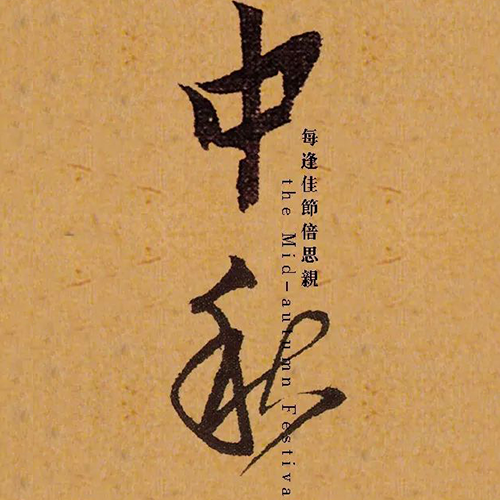 中秋
每逢佳節倍思親
the Mid-autumn Festiva